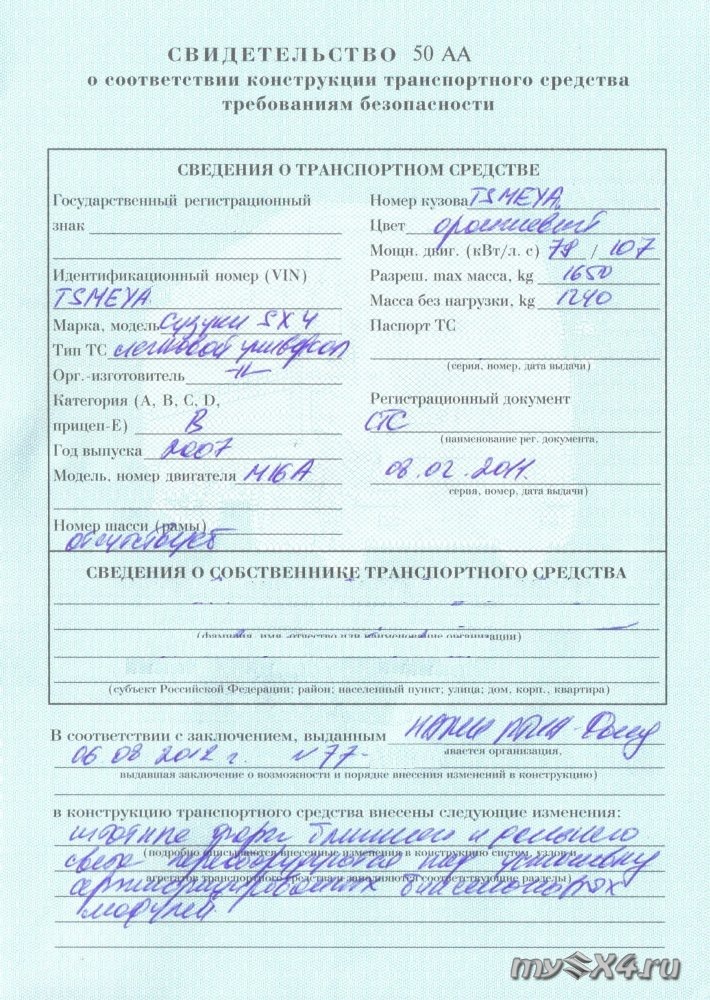 СВИДЕТЕЛЬСТВО 50 АА
о соответствии конструкции транспортного средства
требованиям безопасности
СВЕДЕНИЯ О ТРАНСПОРТНОМ СРЕДСТВЕ
Государственный регистрационный
знак
Идентификационный номер (VIN)
TSMEYA
Марка, модель Сузуки SX4
Тип ТС легковой универсал
Орг.-изготовитель
Категория (A, B, C, D,
прицеп-E) B
Год выпуска 2007
Модель, номер двигателя M16A
Номер шасси (рамы)
отсутствует
Номер кузова TSMEYA
Цвет оранжевый
Мощн. двиг. (кВт/л. с) 79 / 107
Разреш. max масса, kg 1650
Масса без нагрузки, kg 1240
Паспорт ТС
(серия, номер, дата выдачи)
Регистрационный документ
СТС
(наименование рег. документа,
08.02.2011.
серия, номер, дата выдачи)
СВЕДЕНИЯ О СОБСТВЕННИКЕ ТРАНСПОРТНОГО СРЕДСТВА
(фамилия, имя, отчество или наименование организации)
(субъект Российской Федерации; район; населенный пункт; улица; дом, корп., квартира)
В соответствии с заключением, выданным
06 08 2012 г. N 77-
ывается организация,
выдавшая заключение о возможности и порядке внесения изменений в конструкцию)
в конструкцию транспортного средства внесены следующие изменения:
штатные фары ближнего и дальнего
(подробно описываются внесенные изменения в конструкцию систем, узлов и
света установку
агрегатов транспортного средства и заполняются соответствующие разделы)
биксеноновых
модулей.
mySX4.ru